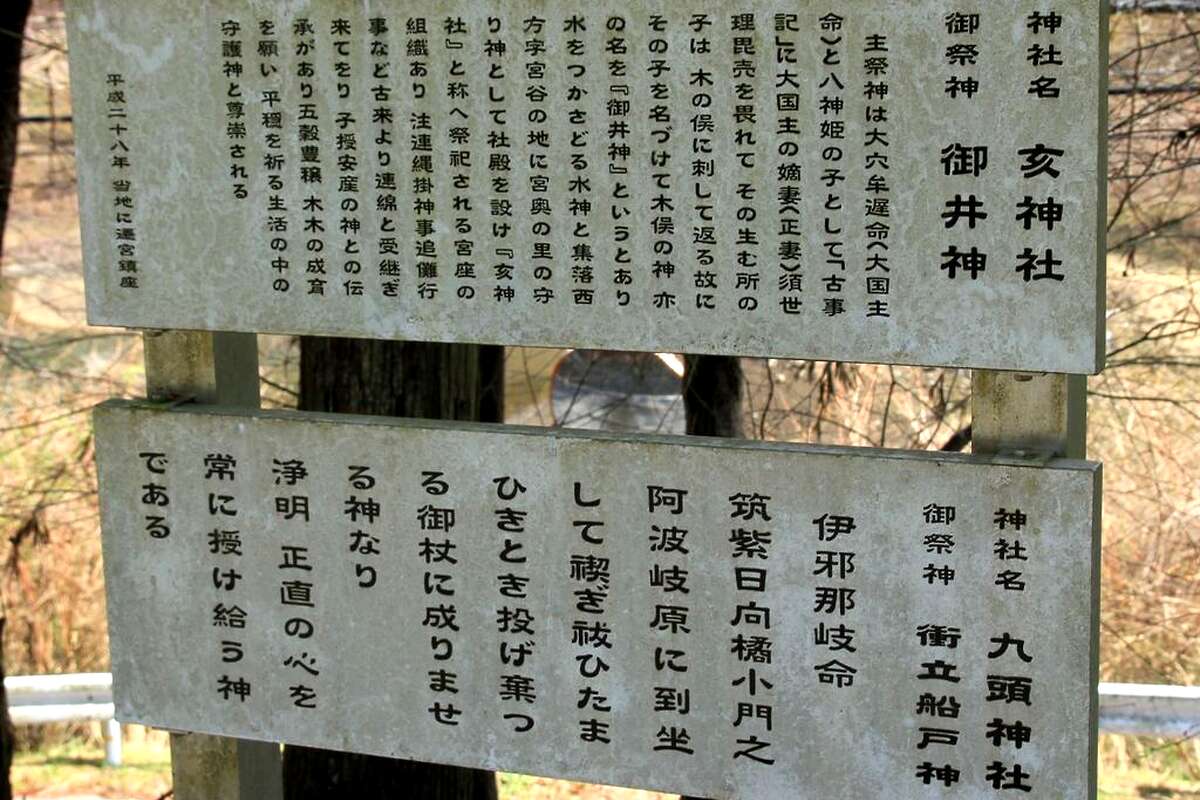 神社名 亥神社
御祭神 御井神
主祭神は大穴牟遅命〈大国主
命〉と八神姫の子として「古事
記」に大国主の嫡妻〈正妻〉須世
理毘売を畏れて その生む所の
子は 木の俣に刺して返る故に
その子を名づけて木俣の神 亦
の名を『御井神』というとあり
水をつかさどる水神と集落西
方字宮谷の地に宮奥の里の守
り神として社殿を設け『亥神
社』と称へ祭祀される宮座の
組織あり 注連縄掛神事追儺行
事など古来より連綿と受継ぎ
来てをり 子授安産の神との伝
承があり五穀豊穣 木木の成育
を願い 平穏を祈る生活の中の
守護神と尊崇される
平成二十八年 当地に遷宮鎮座
神社名 九頭神社
御祭神 衝立船戸神
伊邪那岐命
筑紫日向橘小門之
阿波岐原に到坐
して禊ぎ祓ひたま
ひきとき投げ棄つ
る御杖に成りませ
る神なり
浄明 正直の心を
常に授け給う神
である